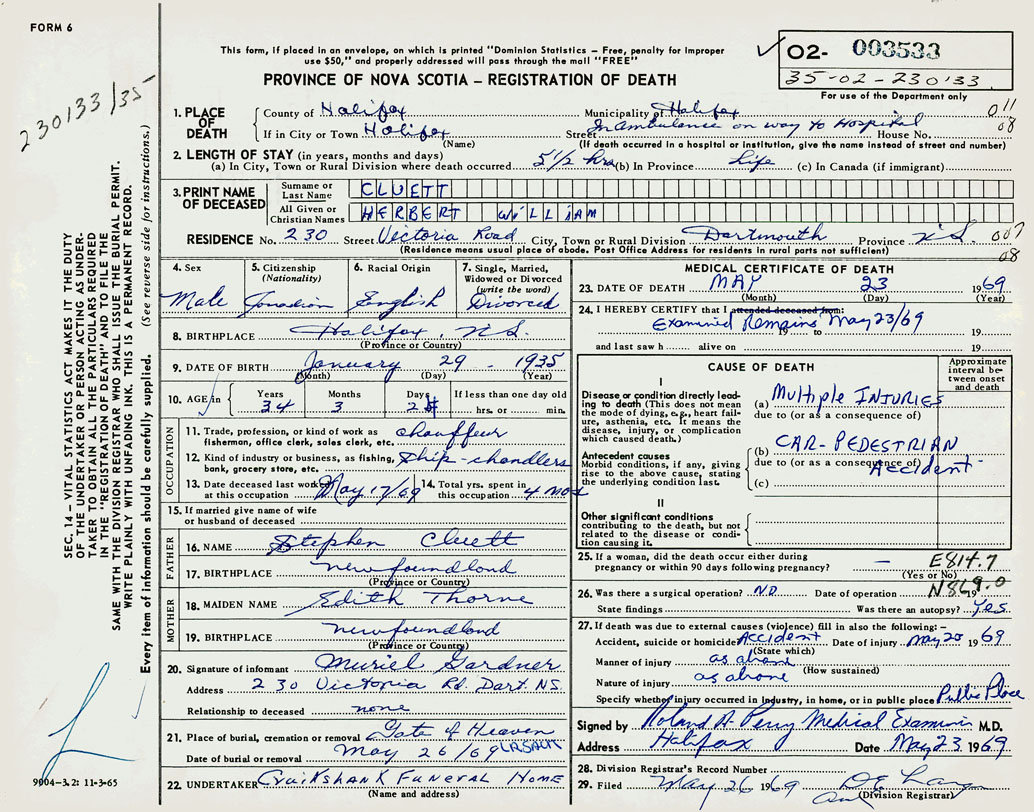 FORM 6
This form, if placed in an envelope, on which is printed "Dominion Statistics – Free, penalty for improper
use $50," and properly addressed will pass through the mail "FREE"
PROVINCE OF NOVA SCOTIA – REGISTRATION OF DEATH
02- 003533
35-02-230133
For use of the Department only
230133/35
1. PLACE OF DEATH County of Halifax Municipality Halifax 011
If in City or Town Halifax Street In ambulance on way to Hospital House No. 08
(Name) (If death occurred in a hospital or institution, give the name instead of street and number)
2. LENGTH OF STAY (in years, months and days)
(a) In City, Town or Rural Division where death occurred 5 1/2 hrs (b) In Province Life (c) In Canada (if immigrant)
3. PRINT NAME OF DECEASED Surname or Last Name CLUETT
All Given or Christian Names HERBERT WILLIAM
RESIDENCE No. 230 Street Victoria Road City, Town or Rural Division Dartmouth Province N.S. 007
(Residence means usual place of abode. Post Office Address for residents in rural parts not sufficient) 08
4. Sex Male
5. Citizenship (Nationality) Canadian
6. Racial Origin English
7. Single, Married, Widowed or Divorced (write the word) Divorced
8. BIRTHPLACE Halifax, N.S.
(Province or Country)
9. DATE OF BIRTH January 29 - 1935
(Month) (Day) (Year)
10. AGE in Years 34 Months 3 Days If less than one day old hrs. or min.
OCCUPATION
11. Trade, profession, or kind of work as fisherman, office clerk, sales clerk, etc. chauffeur
12. Kind of industry or business, as fishing, bank, grocery store, etc. Ship-chandlers
13. Date deceased last worked at this occupation May 17/69
14. Total yrs. spent in this occupation 4 mos
15. If married give name of wife or husband of deceased
FATHER
16. NAME Stephen Cluett
17. BIRTHPLACE Newfoundland
(Province or Country)
MOTHER
18. MAIDEN NAME Edith Thorne
19. BIRTHPLACE Newfoundland
(Province or Country)
20. Signature of informant Muriel Gardner
Address 230 Victoria Rd. Dart. N.S.
Relationship to deceased none
21. Place of burial, cremation or removal Gate of Heaven
Date of burial or removal May 26/69 LR.SACK
22. UNDERTAKER Cruikshank Funeral Home
(Name and address)
MEDICAL CERTIFICATE OF DEATH
23. DATE OF DEATH MAY 23 1969
(Month) (Day) (Year)
24. I HEREBY CERTIFY that I attended deceased from:
Examined Remains May 23/69
to 19
and last saw h alive on 19
CAUSE OF DEATH
Approximate interval between onset and death
I
Disease or condition directly leading to death (This does not mean the mode of dying, e.g., heart failure, asthenia, etc. It means the disease, injury, or complication which caused death.)
(a) Multiple INJURIES
due to (or as a consequence of)
Antecedent causes
Morbid conditions, if any, giving rise to the above cause, stating the underlying condition last.
(b) CAR-PEDESTRIAN
due to (or as a consequence of) Accident
(c)
II
Other significant conditions
contributing to the death, but not related to the disease or condition causing it.
25. If a woman, did the death occur either during pregnancy or within 90 days following pregnancy? —
(Yes or No)
E814.7
N869.0
26. Was there a surgical operation? NO Date of operation 19
State findings Was there an autopsy? Yes
27. If death was due to external causes (violence) fill in also the following:–
Accident, suicide or homicide Accident Date of injury May 1969
(State which)
Manner of injury as above (How sustained)
Nature of injury as above
Specify whether injury occurred in Industry, in home, or in public place Public Place
Signed by Roland A. Perry Medical Examiner M.D.
Address Halifax Date May 23 1969
28. Division Registrar's Record Number
29. Filed May 26 1969
(Division Registrar)
SEC. 14 – VITAL STATISTICS ACT MAKES IT THE DUTY
OF THE UNDERTAKER OR PERSON ACTING AS UNDER-
TAKER TO OBTAIN ALL THE PARTICULARS REQUIRED
IN THE "REGISTRATION OF DEATH" AND TO FILE THE
SAME WITH THE DIVISION REGISTRAR WHO SHALL ISSUE THE BURIAL PERMIT.
WRITE PLAINLY WITH UNFADING INK. THIS IS A PERMANENT RECORD.
Every item of information should be carefully supplied. (See reverse side for instructions.)
9004-3.2: 11-3-65